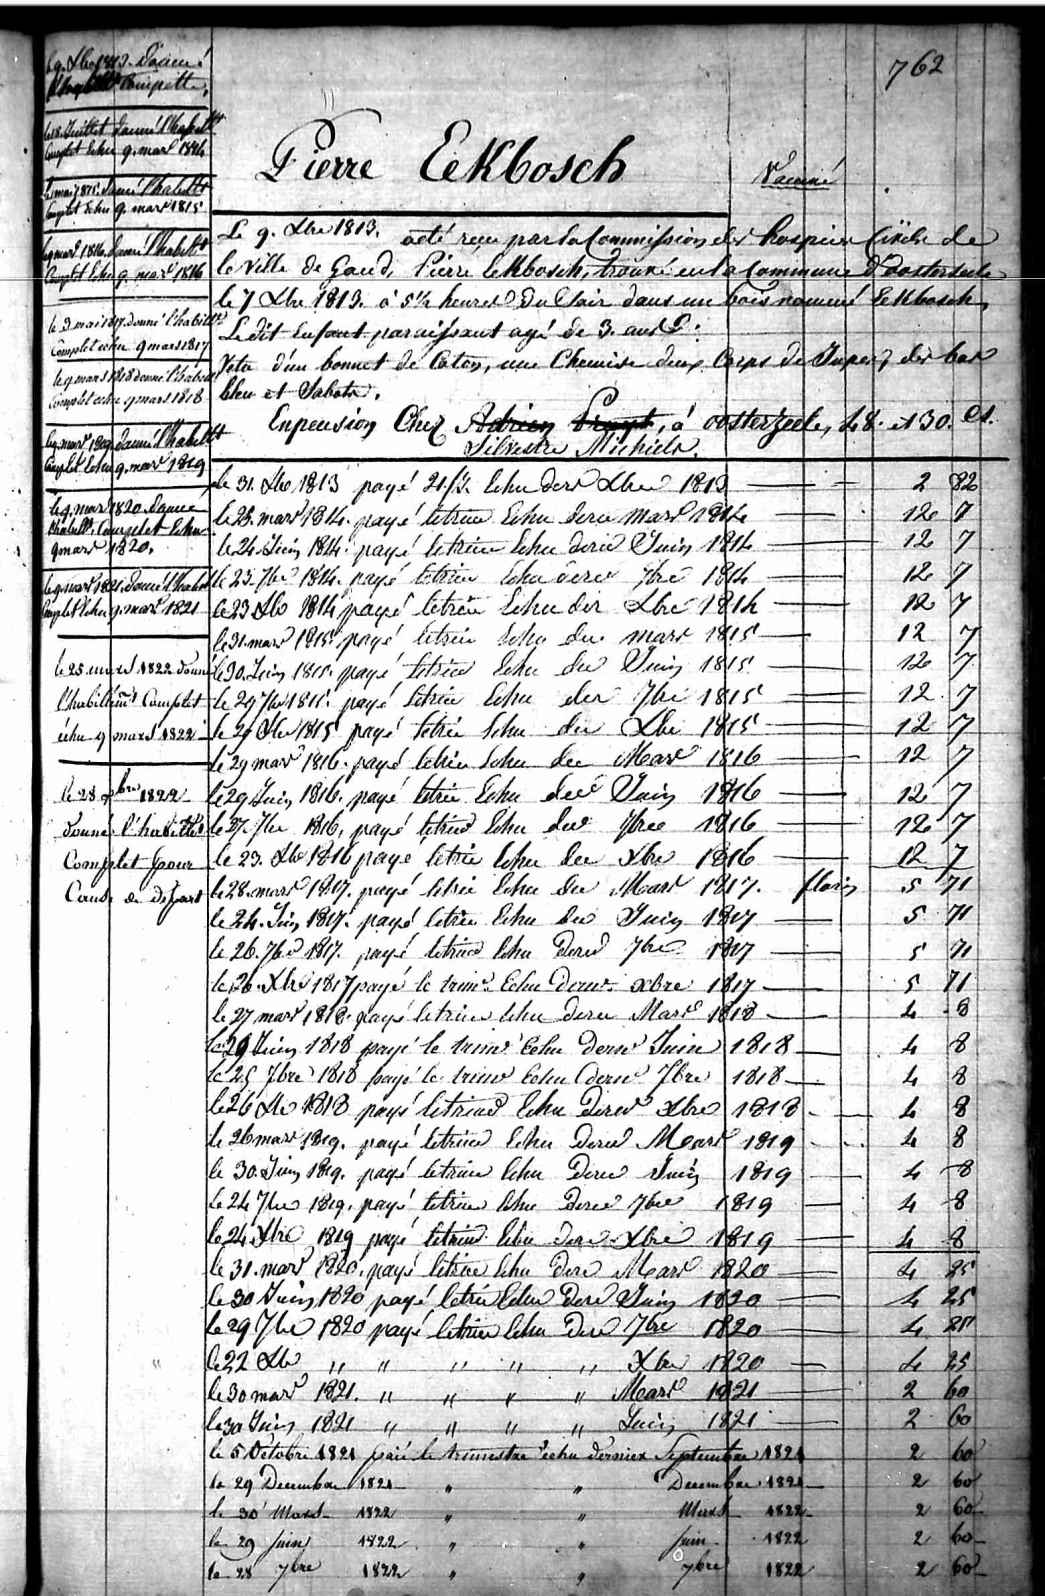 762
Pierre Eekbosch
Vacciné
Le 9. Xbre 1813. acté reçu par la Commission des hospices Civils de
la Ville de Gand, Pierre Eekbosch, trouvé en la Commune d'oosterzeele
le 7 Xbre 1813. à 5 1/2 heures Du Soir dans un bois nommé Eekbosch,
Ledit Enfant paraissant agé de 3. ans
Vetu d'un bonnet de Coton, une Chemise deux Corps de Jupes, des bas
bleu et Sabots.
Enpension Chez Adrien Pruyt, à oosterzeele, 48. et 30. Ct.
Silvestre Michiels.
le 9. Xbre 1813. Donné
Complette,
le 18. Juillet donné l'habillt
Complet Echu 9. mars 1814
mai 1815. donné l'habillt
Complet Echu 9. mars 1815
le 9 mars 1816. donné l'habillt
Complet Echu 9. mars 1816
le 3 mai 1817. donné l'habillt
Complet echu 9 mars 1817
le 9 mars 1818 donné l'habillt
Complet echu 9 mars 1818
le 9. mars 1819. donné l'habillt
Complet Echu 9. mars 1819
le 9. mars 1820. donné
l'habillt. Complet Echu
9 mars 1820.
le 9. mars 1821. donné l'habillt
Complet Echu 9. mars 1821
le 25 mars 1822 donné
l'habillemt Complet
échu 9 mars 1822
le 28 7bre 1822
donné l'habillt
Complet pour
Cause de départ
le 31. Xbre 1813 payé 21/j. Echu ders Xbre 1813 2 82
le 28. mars 1814. payé letrim Echu dern mars 1814 12 7
le 24. Juin 1814. payé letrim Echu dern Juin 1814 12 7
le 23. 7bre 1814. payé letrim Echu dern 7bre 1814 12 7
le 23 Xbre 1814 payé letrim Echu der Xbre 1814 12 7
le 31. mars 1815 payé letrim Echu der mars 1815 12 7
le 30. Juin 1815. payé letrim Echu der Juin 1815 12 7
le 29 7bre 1815. payé letrim Echu der 7bre 1815 12 7
le 29 Xbre 1815 payé letrim Echu der Xbre 1815 12 7
le 29 mars 1816. payé letrim Echu der Mars 1816 12 7
le 29 Juin 1816. payé letrim Echu der Juin 1816 12 7
le 27. 7bre 1816, payé letrim Echu der 7bre 1816 12 7
le 23. Xbre 1816 payé letrim Echu der Xbre 1816 12 7
le 28. mars 1817. payé letrim Echu der Mars 1817. florins 5 71
le 24. Juin 1817. payé letrim Echu der Juin 1817 5 71
le 26. 7bre 1817. payé letrim Echu dern 7bre 1817 5 71
le 26. Xbre 1817 payé le trim. Echu dern. xbre 1817 5 71
le 27 mars 1818. payé letrim Echu dern Mars 1818 4 8
le 29 Juin 1818 payé le trim Echu dern Juin 1818 4 8
le 25 7bre 1818 payé le trim Echu dern 7bre 1818 4 8
le 26 Xbre 1818 payé letrim Echu Dern xbre 1818 4 8
le 26 mars 1819. payé letrim Echu Dern Mars 1819 4 8
le 30. Juin 1819. payé letrim Echu Dern Juin 1819 4 8
le 24 7bre 1819. payé letrim Echu Dern 7bre 1819 4 8
le 24 Xbre 1819 payé letrim Echu dern Xbre 1819 4 8
le 31. mars 1820. payé letrim Echu Dern Mars 1820 4 25
le 30 Juin 1820 payé letrim Echu Dern Juin 1820 4 25
le 29 7bre 1820 payé letrim Echu Dern 7bre 1820 4 25
le 22 Xbre " " " " " Xbre 1820 4 25
le 30 mars 1821. " " " " Mars 1821 2 60
le 30 Juin 1821 " " " " Juin 1821 2 60
le 5 Octobre 1821 paié le trimestre échu dernier Septembre 1821 2 60
le 29 Decembre 1821 " " Decembre 1821 2 60
le 30 Mars 1822 " " Mars 1822 2 60
le 29 juin 1822 " " juin 1822 2 60
le 28 7bre 1822 " " 7bre 1822 2 60